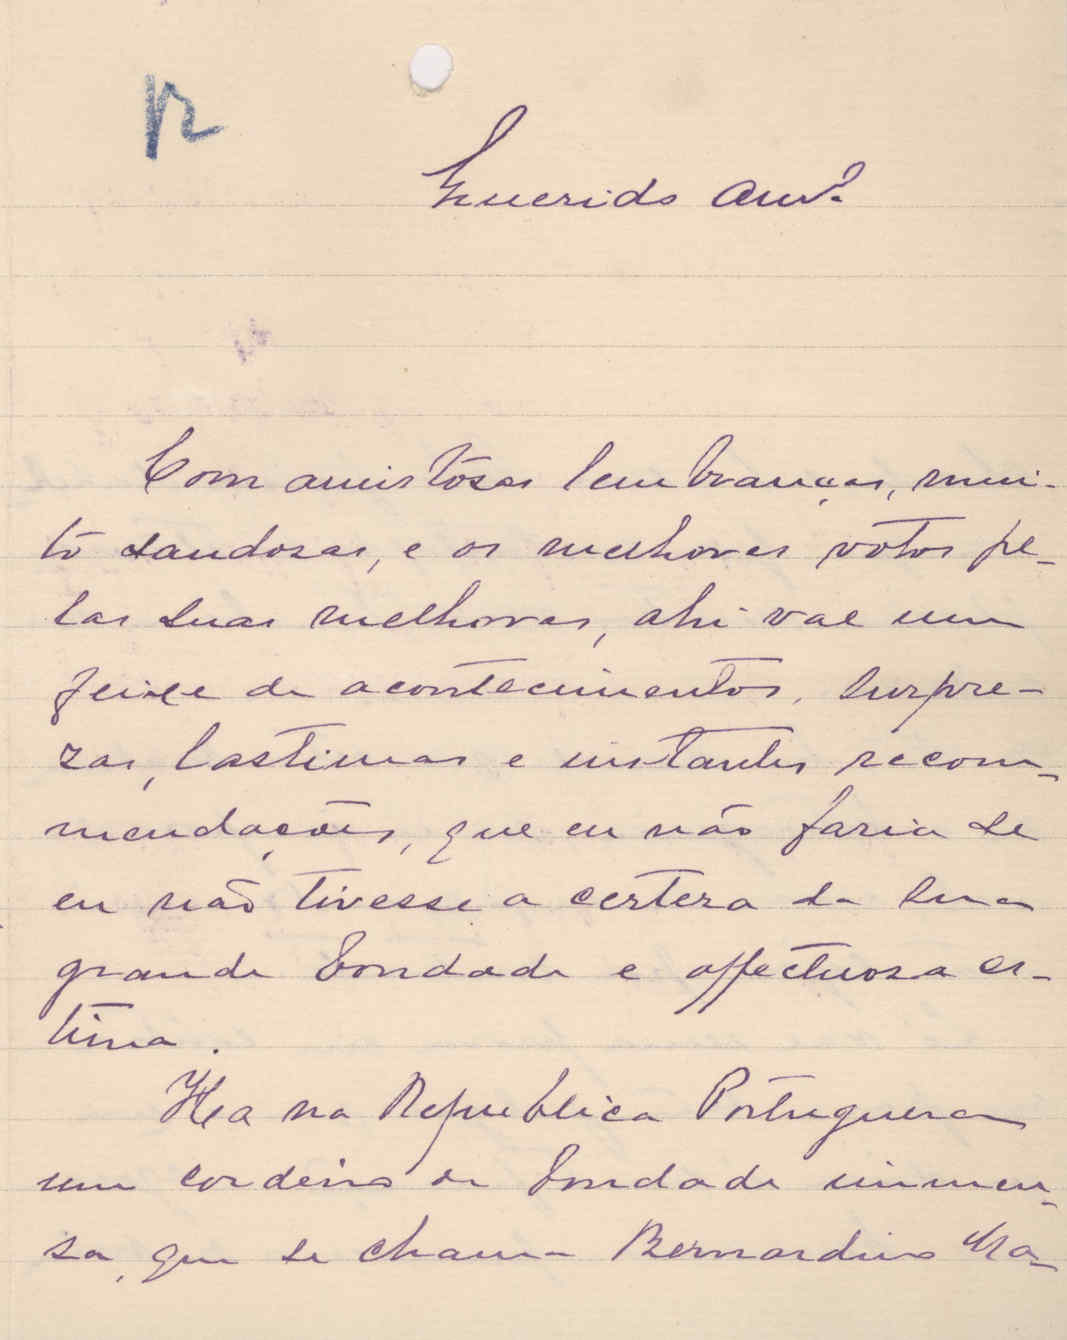 Querido Amº.
Com amistósas lembranças, mui-
to saudosas, e os melhores votos pe-
las suas melhoras, ahi vae um
feixe de acontecimentos, surpre-
zas, lastimas e instantes recom-
mendações, que eu não faria se
eu não tivesse a certeza da sua
grande bondade e affectuosa es-
tima.
Ha na Republica Portugueza
um cordeiro de bondade immen-
sa, que se chama Bernardino Ma-